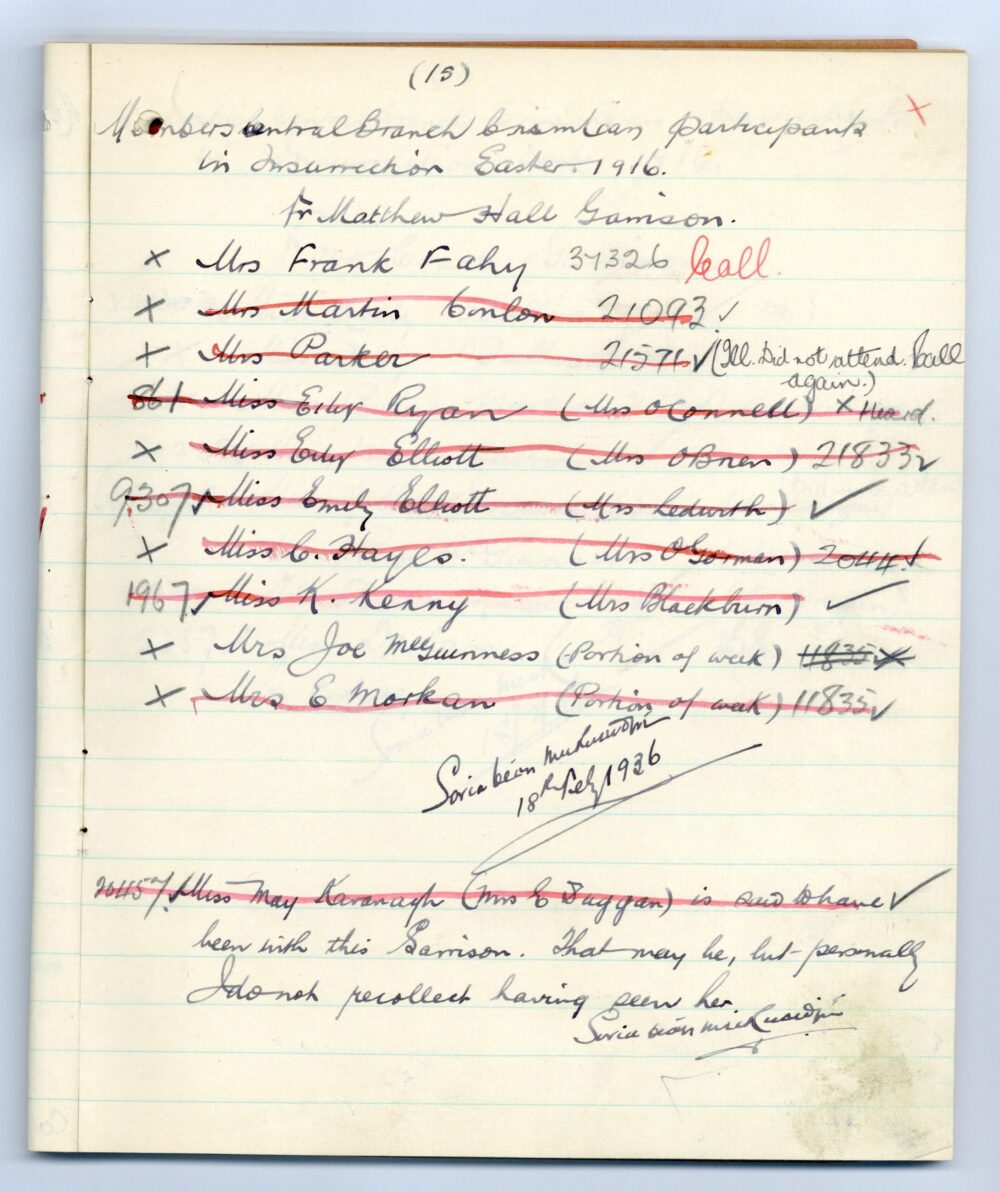 (15)
Members Central Branch Cnamban participants
in Insurrection Easter 1916.
Fr Matthew Hall Garrison.
× Mrs Frank Fahy 37326 Call.
× Mrs Martin Conlon 21093 ✓
× Mrs Parker 21571 ✓ (Ill. Did not attend. Call
again.)
861 Miss Eily Ryan (Mrs O'Connell) × Heard.
× Miss Eily Elliott (Mrs O'Brien) 21833 ✓
9307 ✓ Miss Emily Elliott (Mrs Ledwith) ✓
× Miss C. Hayes. (Mrs O'Gorman) 2044. ✓
1967 ✓ Miss K. Kenny (Mrs Blackburn) ✓
× Mrs Joe McGuinness (Portion of week) 11835 ×
× Mrs E Morkan (Portion of week) 11835 ✓
18th Feby 1936
Miss May Kavanagh (Mrs E Duggan) is said to have ✓
been with this Garrison. That may be, but personally
I do not recollect having seen her.